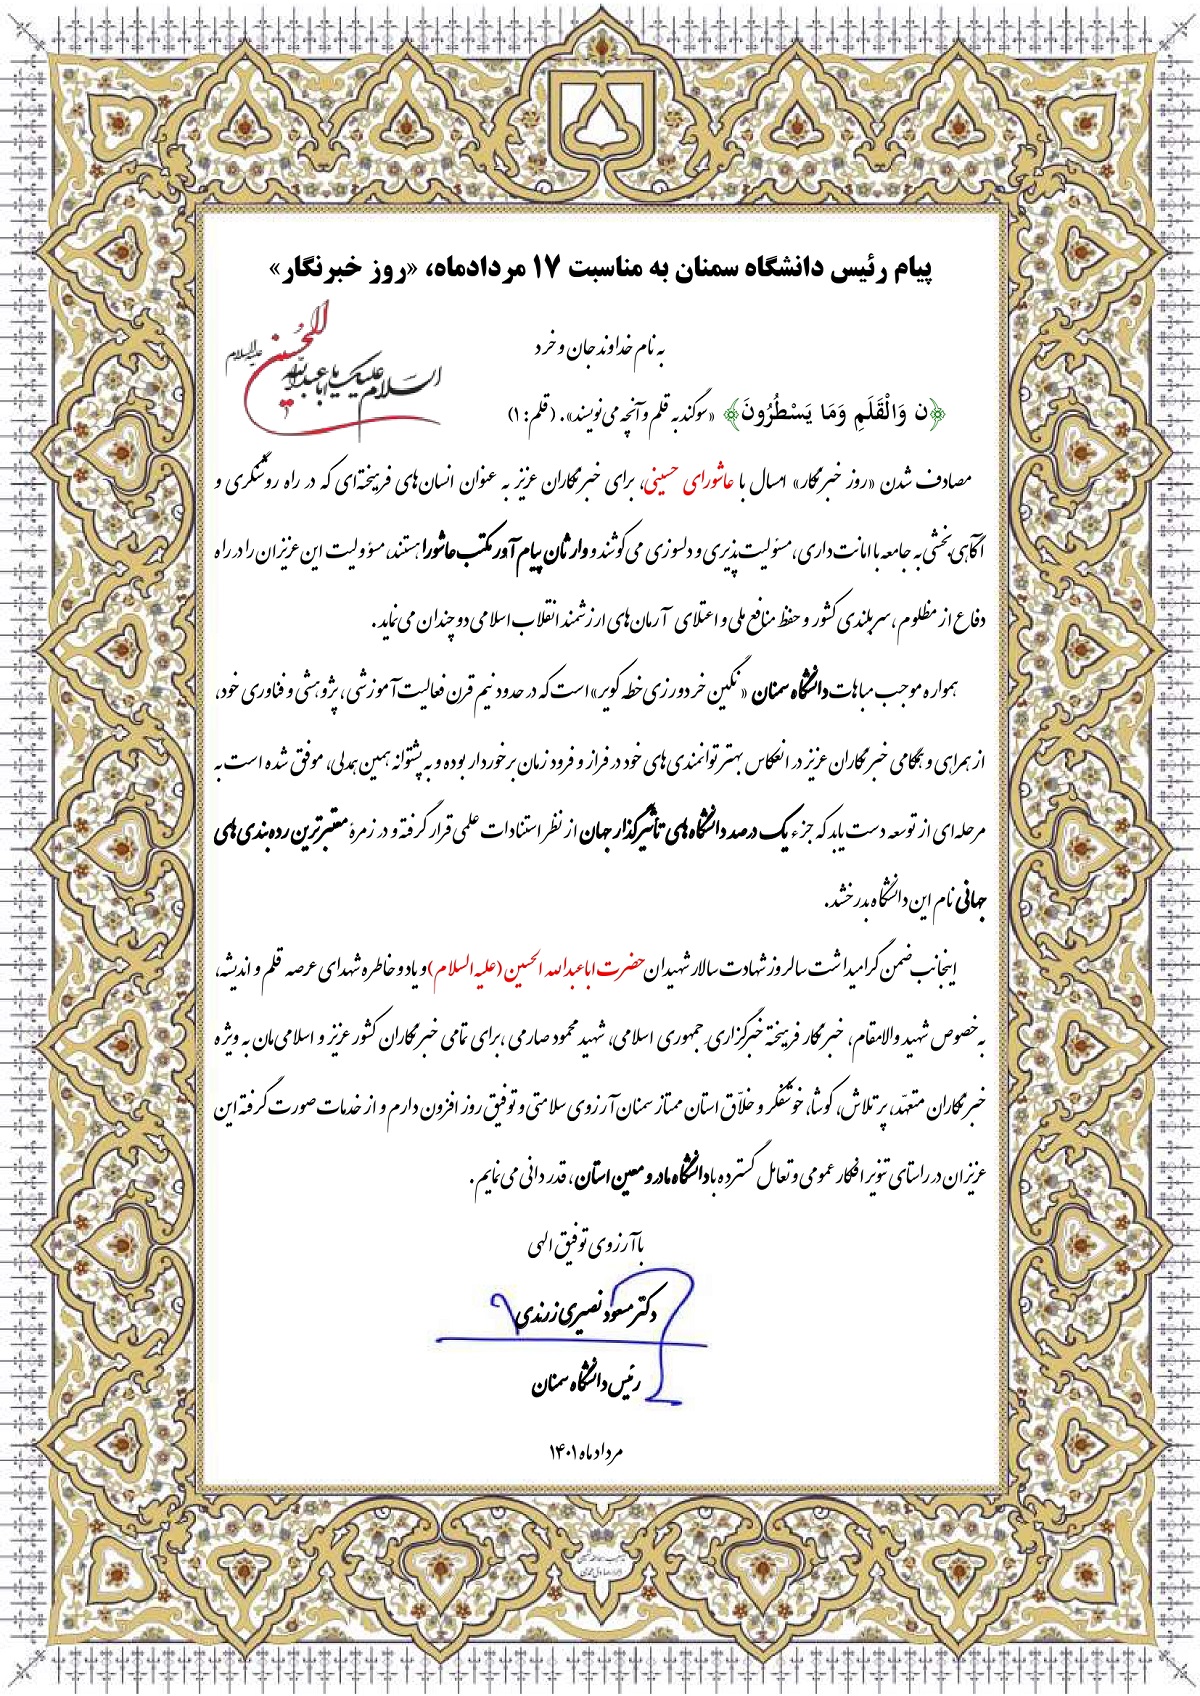 پیام رئیس دانشگاه سمنان به مناسبت ۱۷ مردادماه، «روز خبرنگار»
السلام علیک یا اباعبدالله الحسین علیه السلام
به نام خداوند جان و خرد
﴿ن وَالْقَلَمِ وَمَا يَسْطُرُونَ﴾ «سوگند به قلم و آنچه می‌نویسند». (قلم: ۱)
مصادف شدن «روز خبرنگار» امسال با عاشورای حسینی، برای خبرنگاران عزیز به عنوان انسان‌های فریخته‌ای که در راه روشنگری و
آگاهی بخشی به جامعه با امانت داری، مسئولیت پذیری و دلسوزی می کوشند و وارثان پیام آور مکتب عاشورا هستند، مسؤولیت این عزیزان را در راه
دفاع از مظلوم، سربلندی کشور و حفظ منافع ملی و اعتلای آرمان‌های ارزشمند انقلاب اسلامی دو چندان می نماید.
همواره موجب مباهات دانشگاه سمنان «نگین خردورزی خطه کویر» است که در حدود نیم قرن فعالیت آموزشی، پژوهشی و فناوری خود،
از همراهی و همگامی خبرنگاران عزیز در انعکاس بهتر توانمندی های خود در فراز و فرود زمان برخوردار بوده و به پشتوانه همین همدلی، موفق شده است به
مرحله‌ای از توسعه دست یابد که جزء یک درصد دانشگاه‌های تأثیرگذار جهان از نظر استنادات علمی قرار گرفته و در زمرهٔ معتبرترین رده‌بندی‌های
جهانی نام این دانشگاه بدرخشد.
اینجانب ضمن گرامیداشت سالروز شهادت سالار شهیدان حضرت اباعبدالله الحسین (علیه السلام) و یاد و خاطره شهدای عرصه قلم و اندیشه،
به خصوص شهید والامقام، خبرنگار فریخته خبرگزاری جمهوری اسلامی، شهید محمود صارمی، برای تمامی خبرنگاران کشور عزیز و اسلامی‌مان به ویژه
خبرنگاران متعهد، پرتلاش، کوشا، خوشفکر و خلّاق استان ممتاز سمنان آرزوی سلامتی و توفیق روز افزون دارم و از خدمات صورت گرفته این
عزیزان در راستای تنویر افکار عمومی و تعامل گسترده با دانشگاه مادر و معین استان، قدردانی می نمایم.
با آرزوی توفیق الهی
دکتر مسعود نصیری زرندی
رئیس دانشگاه سمنان
مرداد ماه ۱۴۰۱